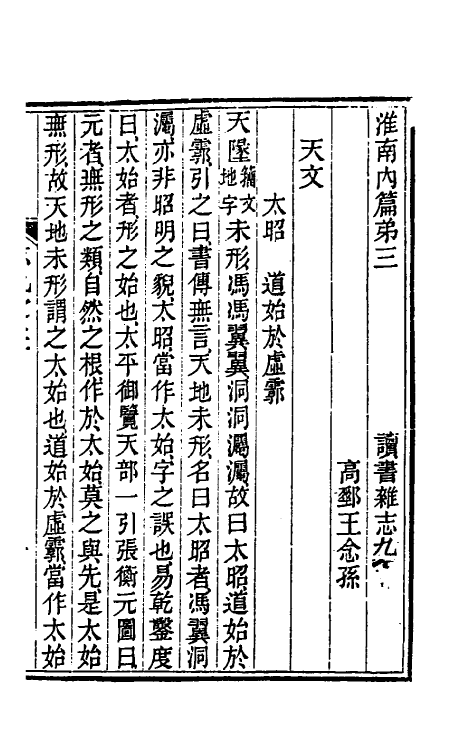 淮南內篇弟三　讀書雜志九
高郵王念孫
天文
太昭　道始於虛霩
天墬籒文地字未形、馮馮翼翼、洞洞灟灟、故曰太昭、道始於
虛霩、引之曰、書傳無言、天地未形、名曰太昭者、馮翼洞
灟、亦非昭明之貌、太昭當作太始、字之誤也、易乾鑿度
曰、太始者、形之始也、太平御覽天部一引張衡元圖曰、
元者、無形之類、自然之根、作於太始、莫之與先、是太始
無形、故天地未形謂之太始也、道始於虛霩、當作太始